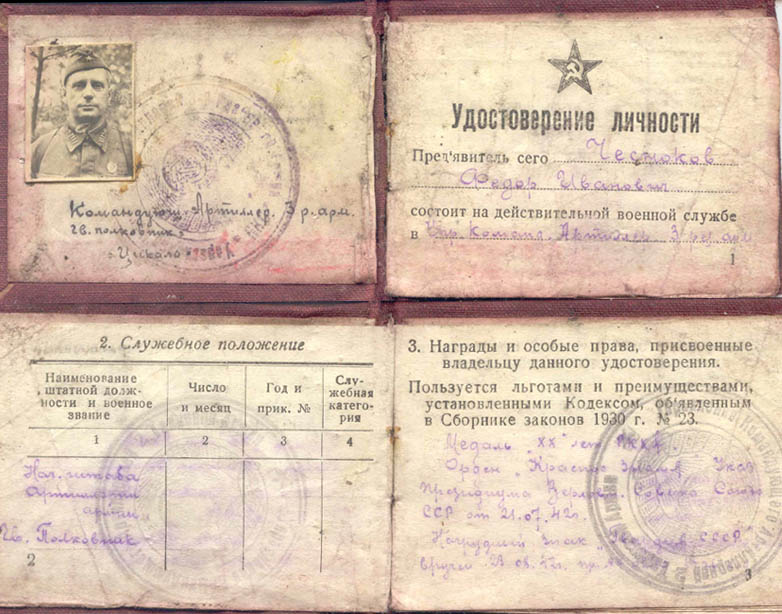 Командующ. Артиллер. 3 р. арм.
гв. полковник
Удостоверение личности
Пред'явитель сего Чесноков
Федор Иванович
состоит на действительной военной службе
в Упр. Команд. Артиллер. 3
1
2. Служебное положение
Наименование штатной должности и военное звание
Число и месяц
Год и прик. №
Служебная категория
1 2 3 4
Нач. штаба
Артиллерии
армии
Гв. Полковник
2
3. Награды и особые права, присвоенные
владельцу данного удостоверения.
Пользуется льготами и преимуществами,
установленными Кодексом, об'явленным
в Сборнике законов 1930 г. № 23.
Медаль "XX" лет РККА
Орден "Красное Знамя" Указ
Президиума Верховн. Совета Союза
ССР от 21.07.42г.
Нагрудный знак "Гвардия СССР"
вручен
3